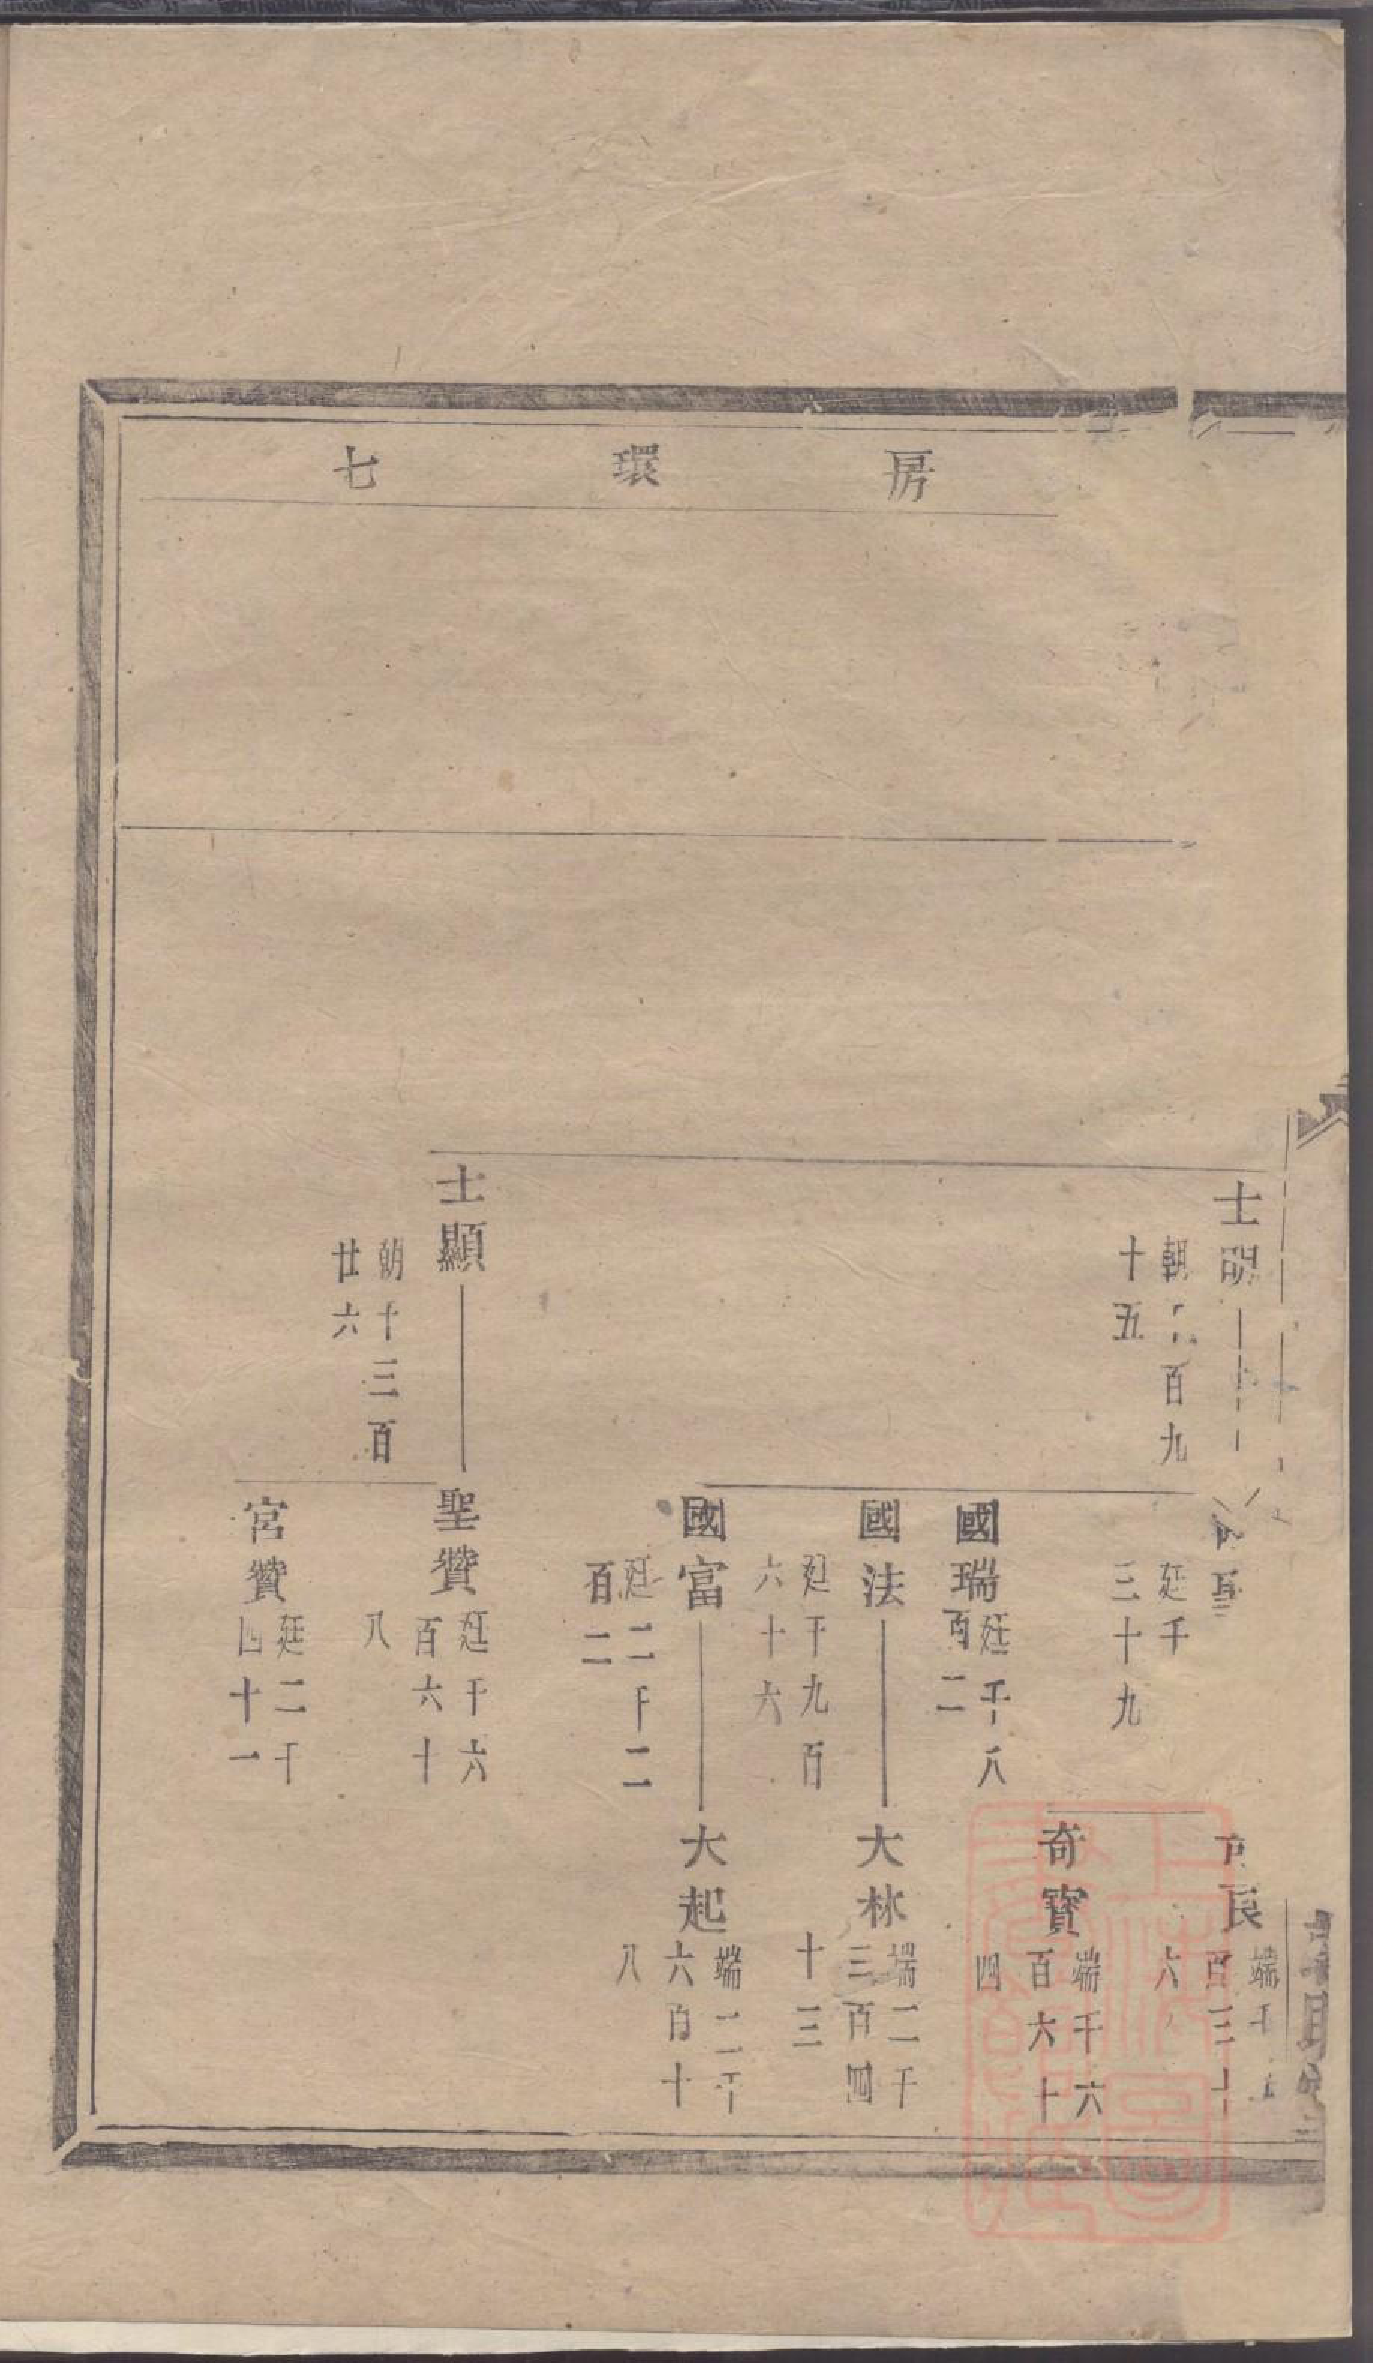 房環七
士明
朝
百九
十五
廷千
三十九
端千
百三十
六
奇寶
端千六
百六十
四
國瑞
廷千八
百二
國法
廷千九百
六十六
大林
端二千
三百四
十三
國富
廷二千二
百二
大起
端二千
六百十
八
士顯
朝千三百
廿六
聖贊
廷千六
百六十
八
宮贊
廷二千
四十一